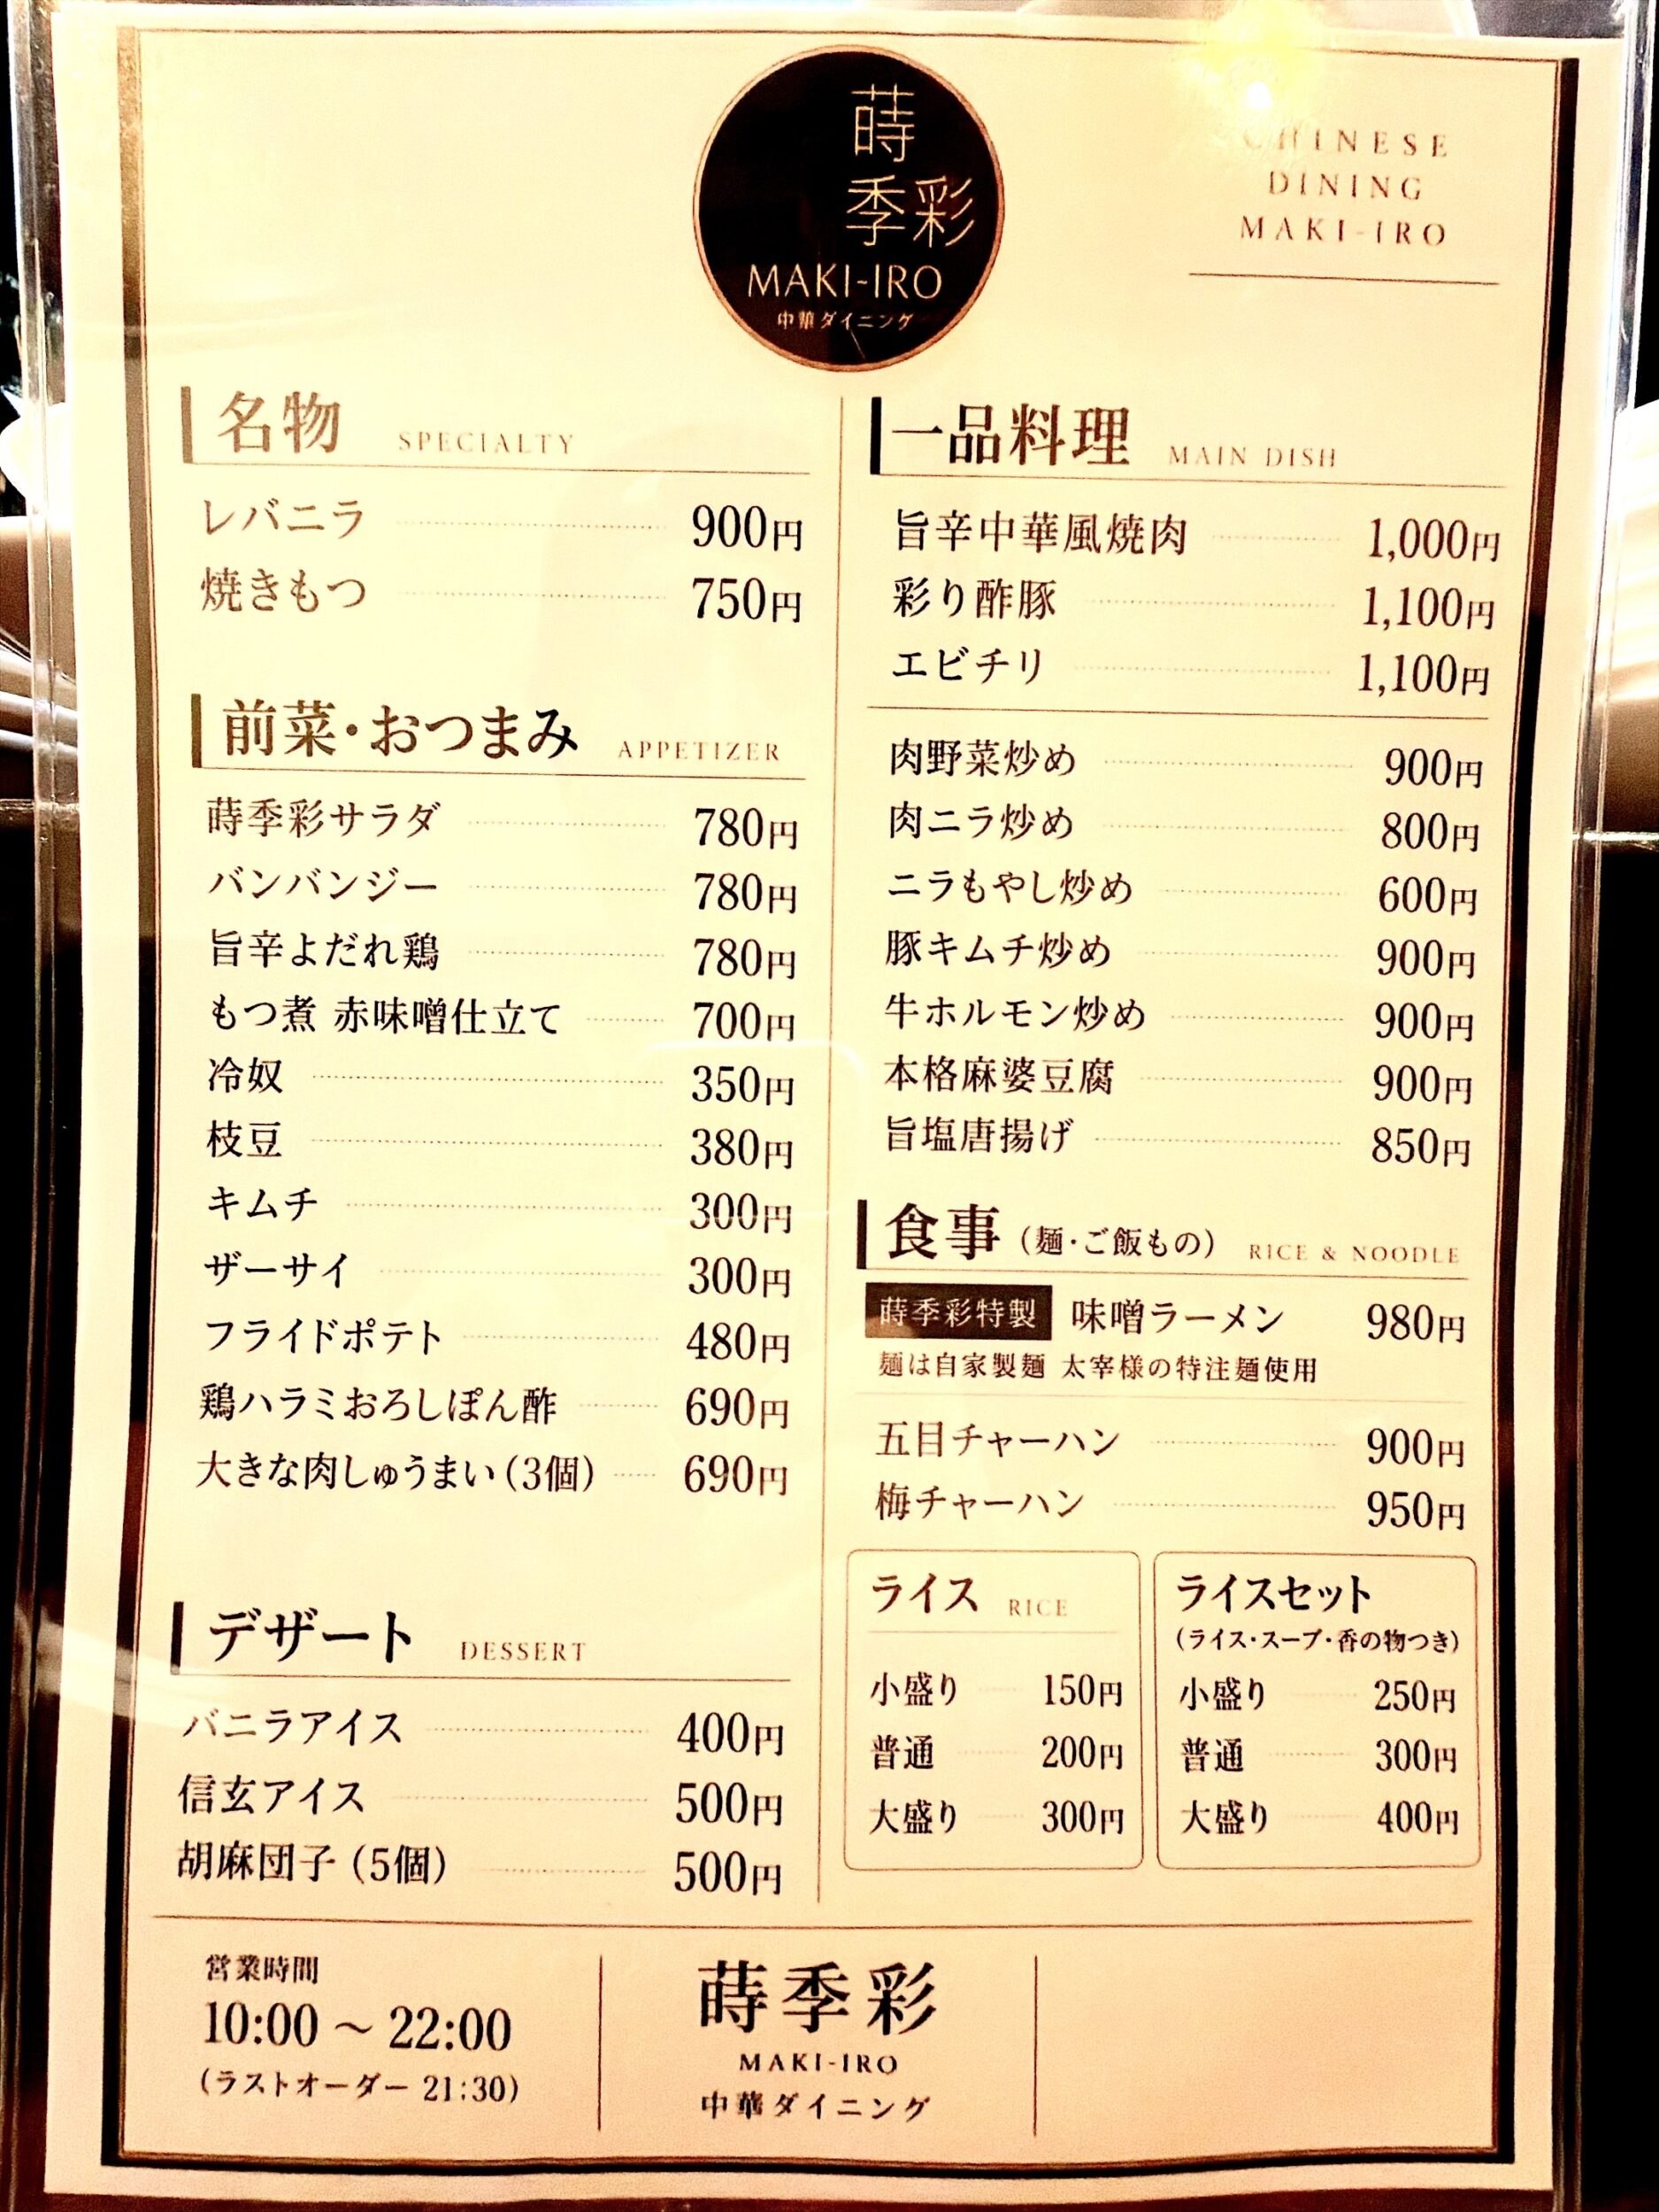 蒔
季彩
MAKI-IRO
中華ダイニング
CHINESE
DINING
MAKI-IRO
名物 SPECIALTY
レバニラ 900円
焼きもつ 750円
前菜・おつまみ APPETIZER
蒔季彩サラダ 780円
バンバンジー 780円
旨辛よだれ鶏 780円
もつ煮 赤味噌仕立て 700円
冷奴 350円
枝豆 380円
キムチ 300円
ザーサイ 300円
フライドポテト 480円
鶏ハラミおろしぽん酢 690円
大きな肉しゅうまい（3個） 690円
デザート DESSERT
バニラアイス 400円
信玄アイス 500円
胡麻団子（5個） 500円
一品料理 MAIN DISH
旨辛中華風焼肉 1,000円
彩り酢豚 1,100円
エビチリ 1,100円
肉野菜炒め 900円
肉ニラ炒め 800円
ニラもやし炒め 600円
豚キムチ炒め 900円
牛ホルモン炒め 900円
本格麻婆豆腐 900円
旨塩唐揚げ 850円
食事（麺・ご飯もの） RICE & NOODLE
蒔季彩特製 味噌ラーメン 980円
麺は自家製麺 太宰様の特注麺使用
五目チャーハン 900円
梅チャーハン 950円
ライス RICE
小盛り 150円
普通 200円
大盛り 300円
ライスセット
（ライス・スープ・香の物つき）
小盛り 250円
普通 300円
大盛り 400円
営業時間
10:00 ～ 22:00
（ラストオーダー 21:30）
蒔季彩
MAKI-IRO
中華ダイニング